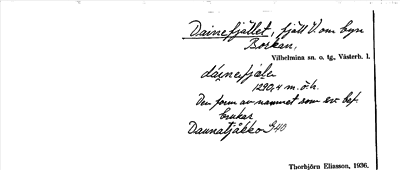 Dainefjället, fjäll V. om byn
Borkan,
Vilhelmina sn. o. tg., Västerb. l.
dáinefjälle
1290,4 m.ö.h.
Den form av namnet som ev. bef.
brukar
Daunatjåkko 340
Thorbjörn Eliasson, 1936.